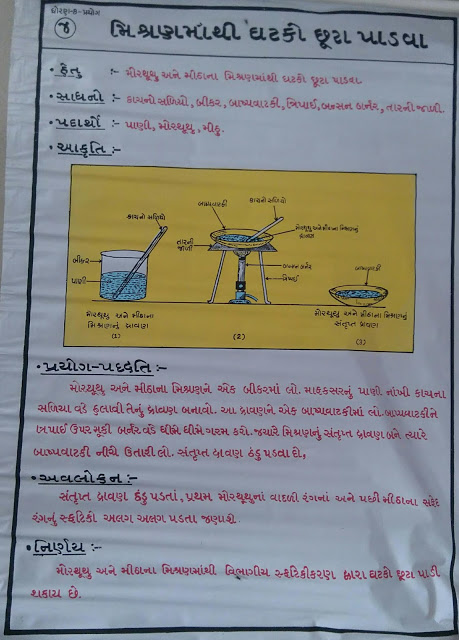 ધોરણ-૭-પ્રયોગ
૪ મિશ્રણમાંથી ઘટકો છૂટા પાડવા
• હેતુ :- મોરથૂથુ અને મીઠાના મિશ્રણમાંથી ઘટકો છૂટા પાડવા.
• સાધનો :- કાચનો સળિયો, બીકર, બાષ્પવાટકી, ત્રિપાઈ, બન્સન બર્નર, તારની જાળી.
• પદાર્થો :- પાણી, મોરથૂથુ, મીઠુ.
• આકૃતિ :-
કાચનો સળિયો
બીકર
પાણી
મોરથૂથુ અને મીઠાના
મિશ્રણનું દ્રાવણ
(1)
કાચનો સળિયો
બાષ્પવાટકી
મોરથૂથુ અને મીઠાના મિશ્રણનું
દ્રાવણ
તારની
જાળી
બન્સન બર્નર
ત્રિપાઈ
(2)
બાષ્પવાટકી
મોરથૂથુ અને મીઠાના મિશ્રણનું
સંતૃપ્ત દ્રાવણ
(3)
• પ્રયોગ-પદ્ધતિ :-
મોરથૂથુ અને મીઠાના મિશ્રણને એક બીકરમાં લો. માફકસરનું પાણી નાંખી કાચના
સળિયા વડે હલાવી તેનું દ્રાવણ બનાવો. આ દ્રાવણને એક બાષ્પવાટકીમાં લો. બાષ્પવાટકીને
ત્રિપાઈ ઉપર મૂકી બર્નર વડે ધીમે ધીમે ગરમ કરો. જ્યારે મિશ્રણનું સંતૃપ્ત દ્રાવણ બને ત્યારે
બાષ્પવાટકી નીચે ઉતારી લો. સંતૃપ્ત દ્રાવણ ઠંડુ પડવા દો,
• અવલોકન :-
સંતૃપ્ત દ્રાવણ ઠંડુ પડતાં, પ્રથમ મોરથૂથુનાં વાદળી રંગનાં અને પછી મીઠાના સફેદ
રંગનું સ્ફટિકો અલગ અલગ પડતા જણાશે.
• નિર્ણય :-
મોરથૂથુ અને મીઠાના મિશ્રણમાંથી વિભાગીય સ્ફટિકીકરણ દ્વારા ઘટકો છૂટા પાડી
શકાય છે.